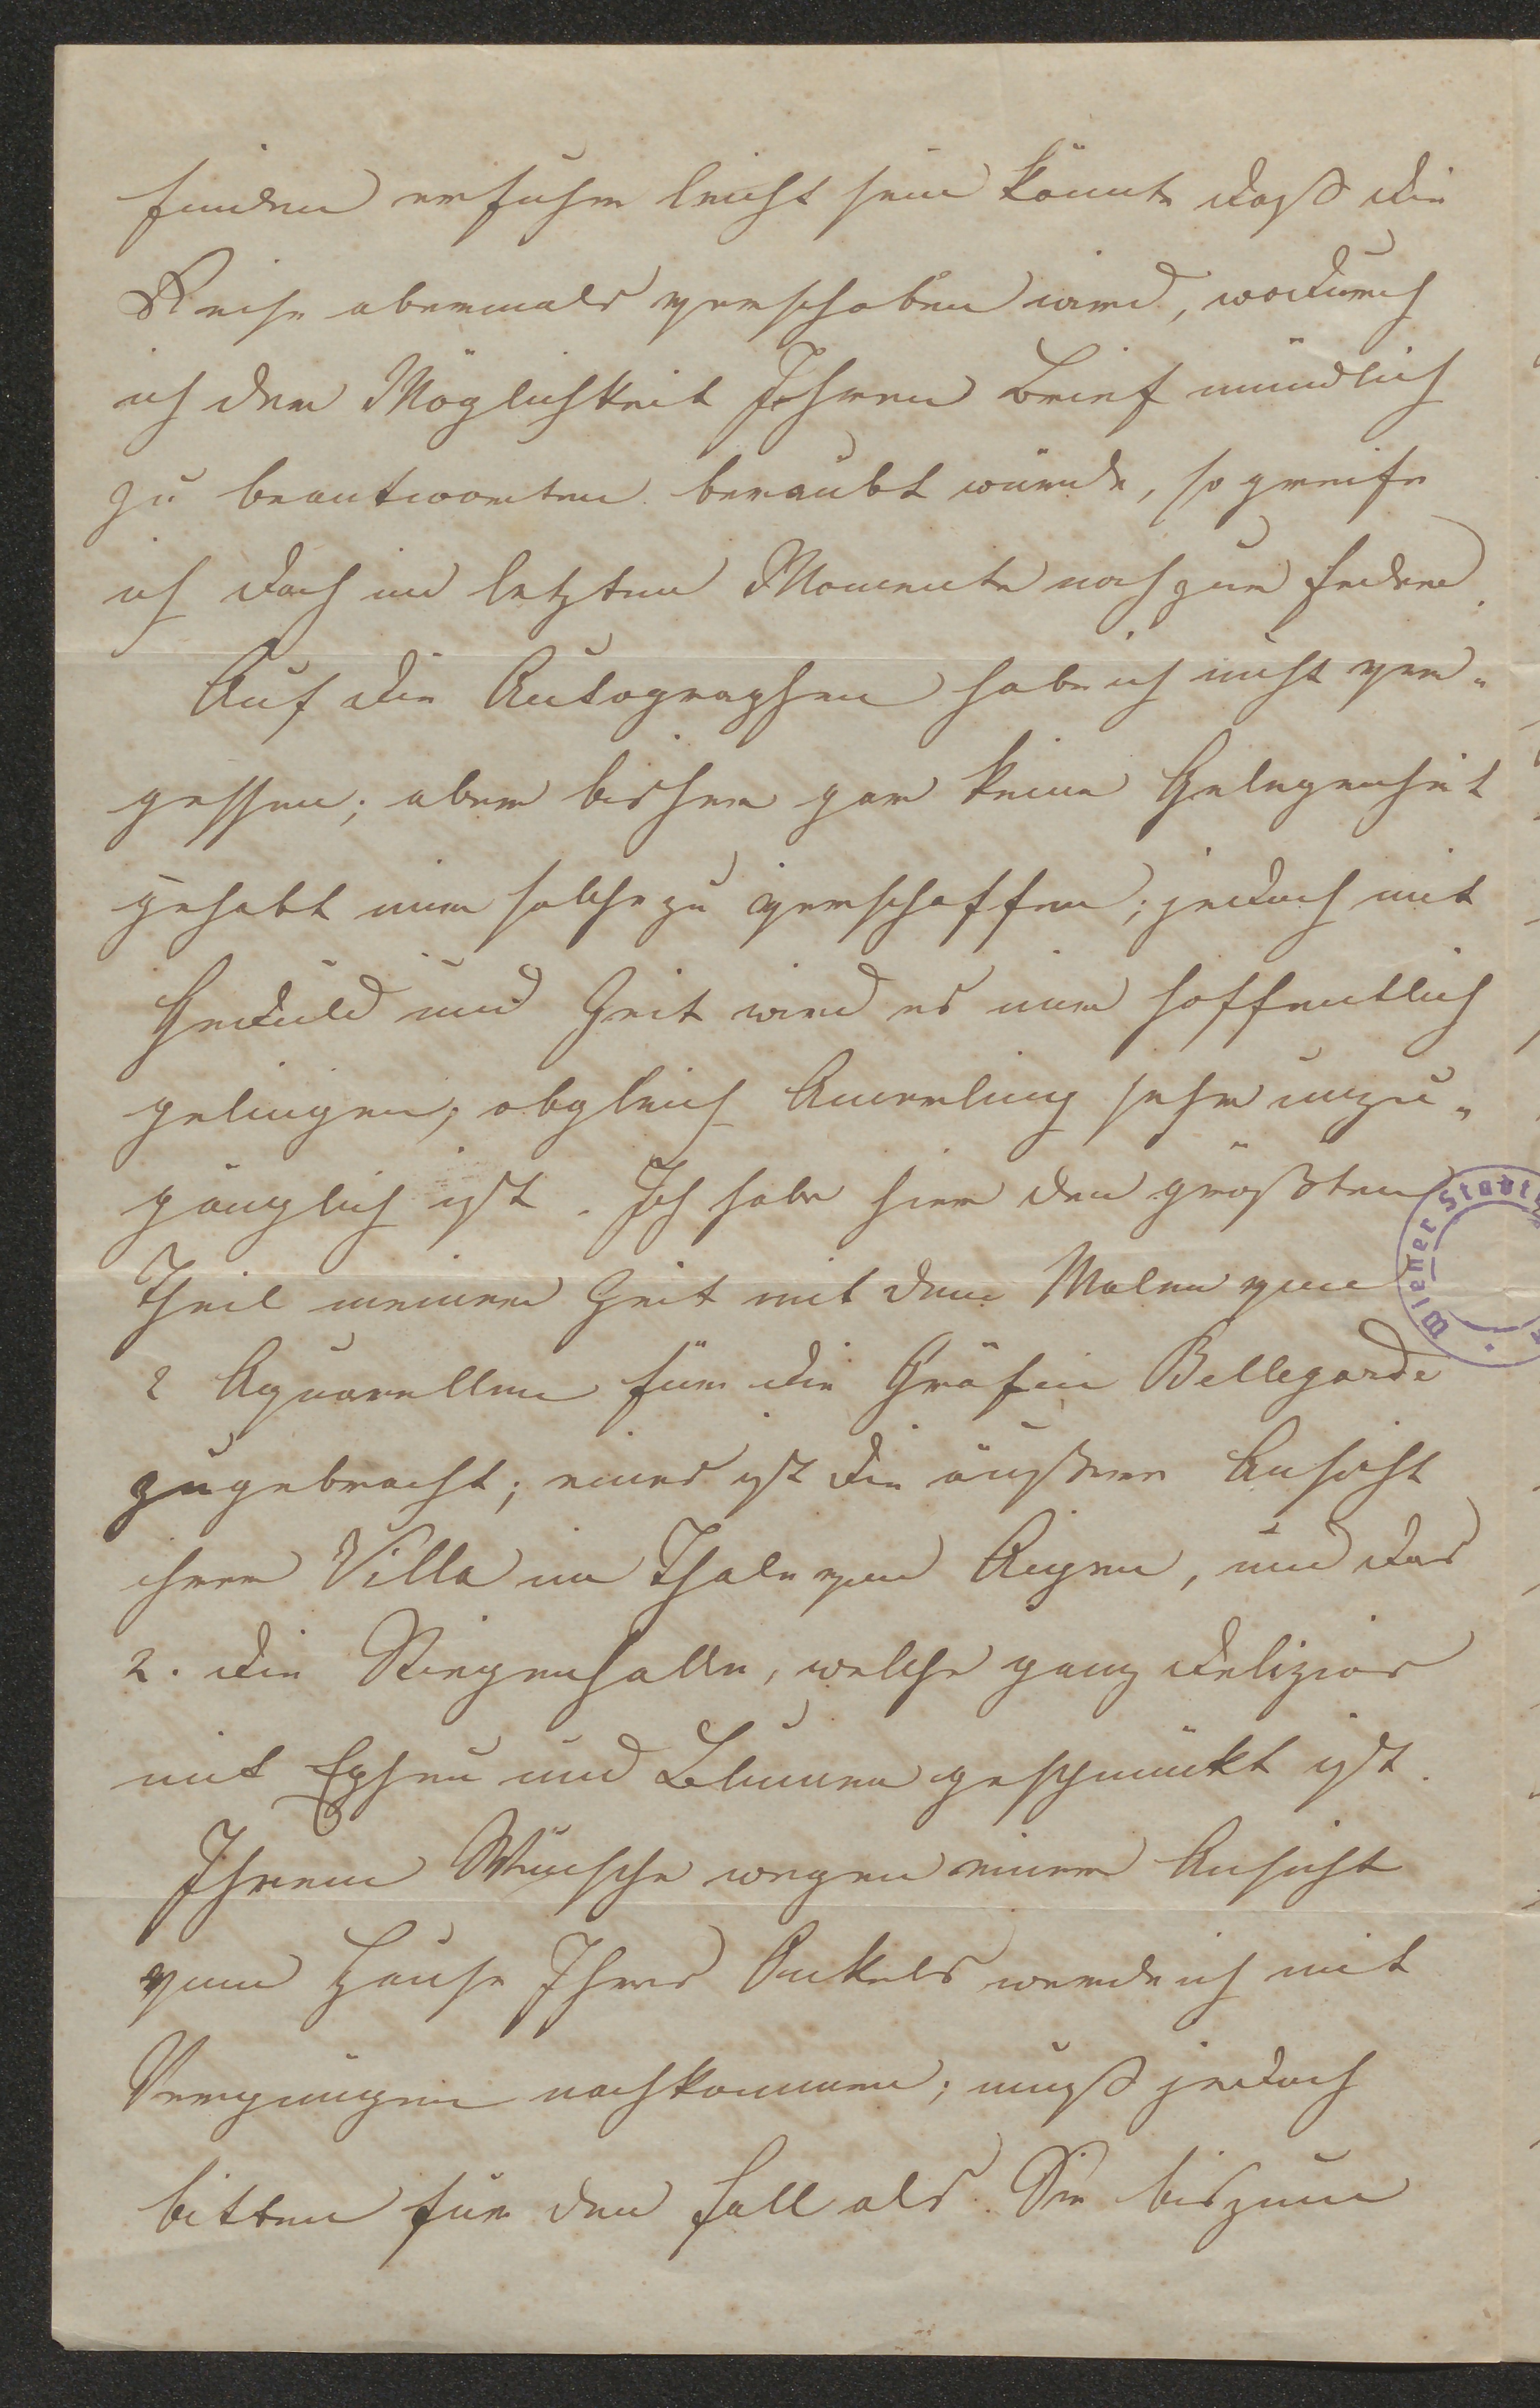 finden es sehr leicht sein könnte daß die
Reise abermals verschoben wird, wodurch
ich der Möglichkeit Ihren Brief mündlich
zu beantworten beraubt würde, so greife
ich doch im letzten Momente noch zur Feder.
Auf die Autographen habe ich nicht ver„
gessen; aber bisher gar keine Gelegenheit
gehabt mir solche zu verschaffen; jedoch mit
Geduld und Zeit wird es mir hoffentlich
gelingen; obgleich Amerling sehr unzu„
gänglich ist. Ich habe hier den größten
Theil meiner Zeit mit dem Malen von
2 Aquarellen für die Gräfin Bellegarde
zugebracht; eines ist die äußere Ansicht
ihrer Villa im Thale von Aigen, und das
2. die Stiegenhalle, welche ganz delizios
mit Epheu und Blumen geschmückt ist.
Ihrem Wunsche wegen einer Ansicht
vom Hause Ihres Onkels werde ich mit
Vergnügen nachkommen; muß jedoch
bitten für den Fall als Sie bis zum
Wiener Stadt